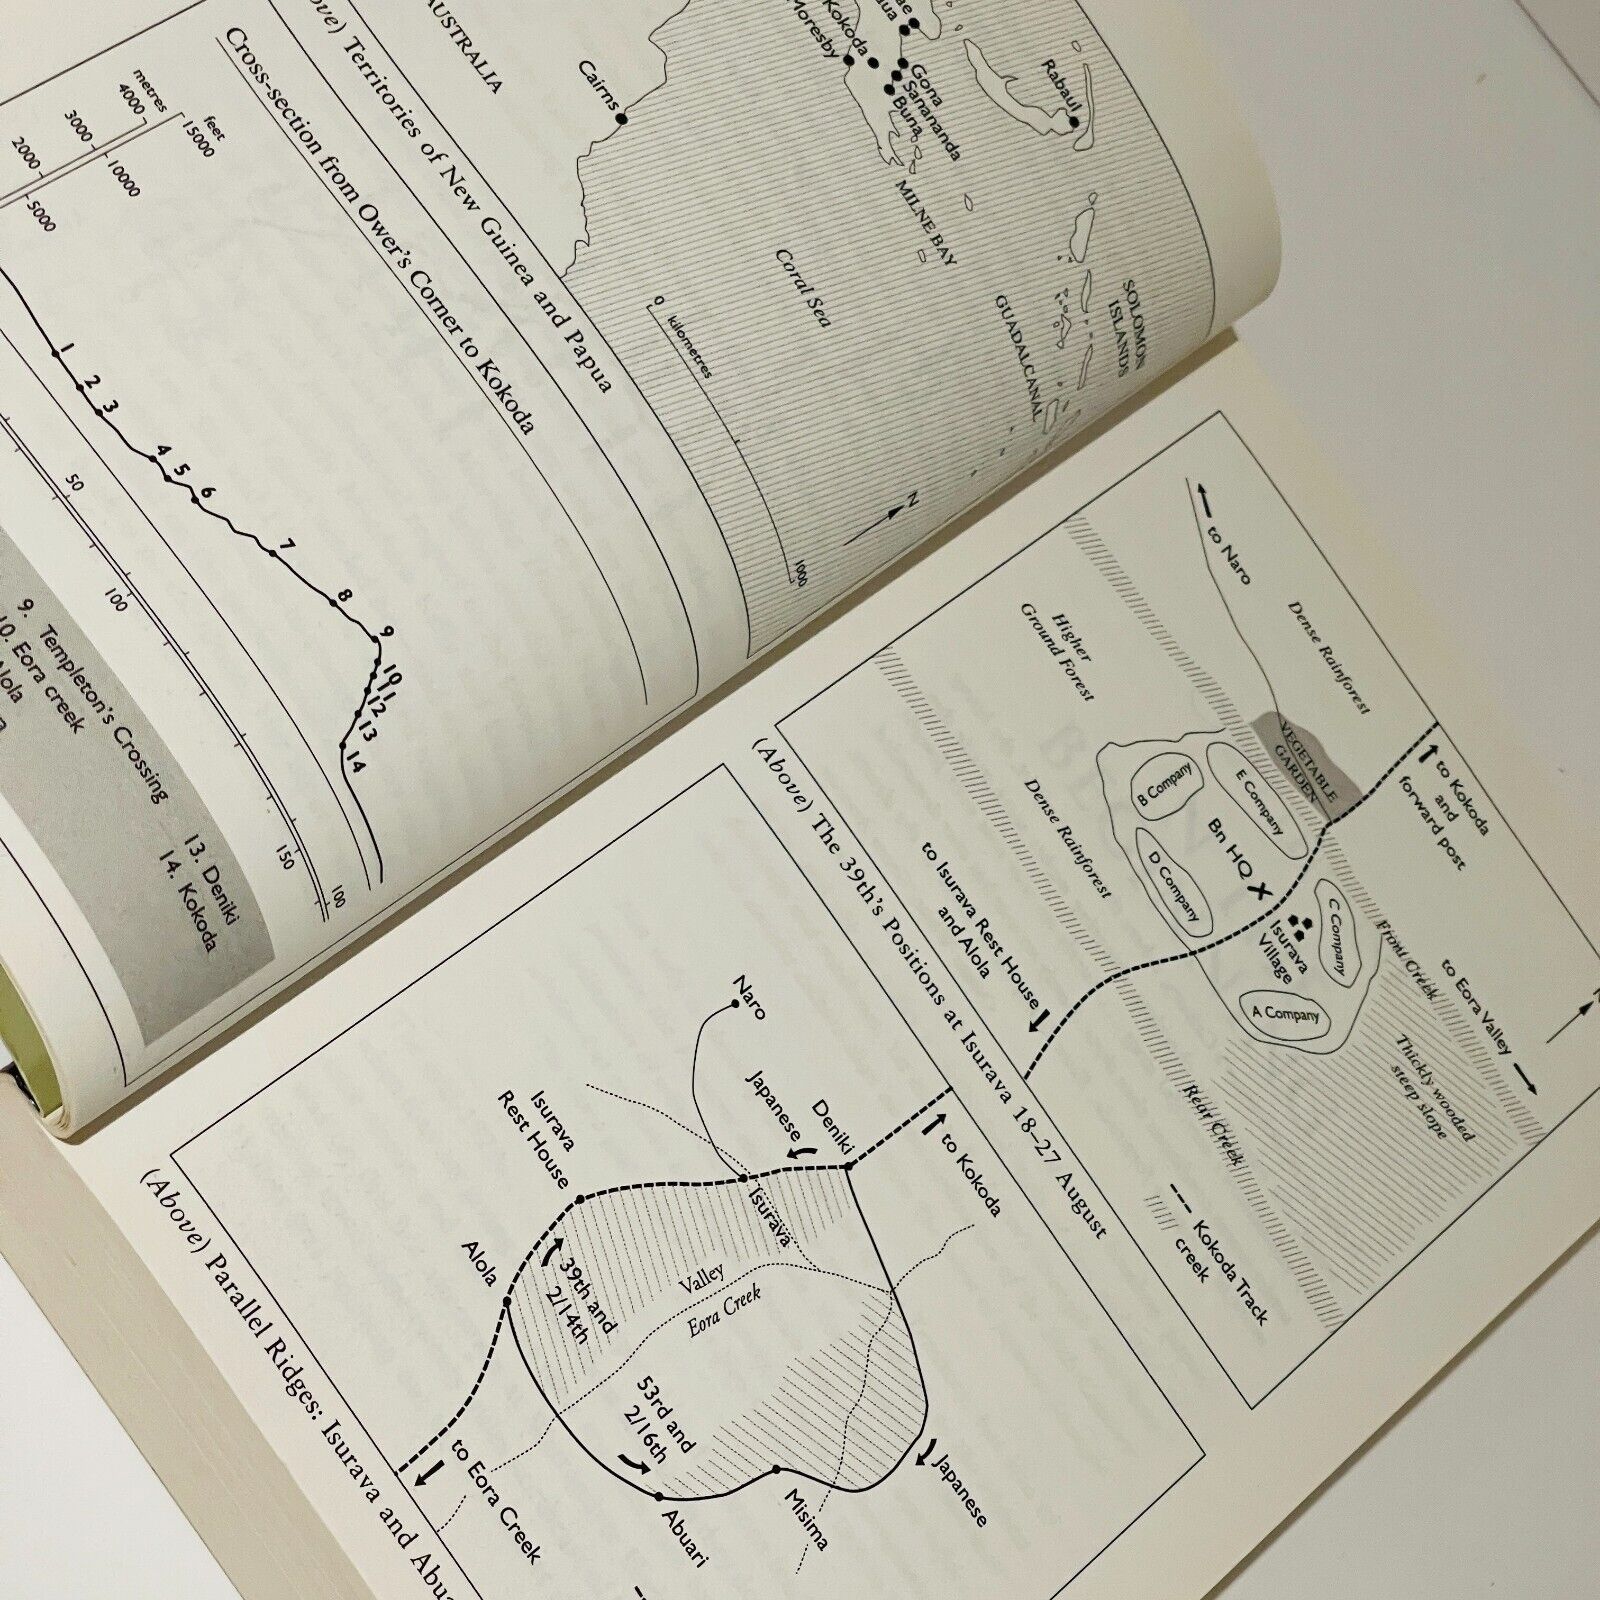 AUSTRALIA
Cairns
Moresby
Kokoda
Gona
Sanananda
Buna
Rabaul
MILNE BAY
Coral Sea
SOLOMON
ISLANDS
GUADALCANAL
0 kilometres 1000
N
Territories of New Guinea and Papua
Cross-section from Ower's Corner to Kokoda
metres
feet
4000
15000
3000
10000
2000
5000
1
2
3
4
5
6
7
8
9
10
11
12
13
14
50
100
150
100
9. Templeton's Crossing
10. Eora creek
13. Deniki
14. Kokoda
to Naro
Dense Rainforest
Higher
Ground Forest
VEGETABLE
GARDEN
to Kokoda
and
forward post
B Company
E Company
Bn HQ
D Company
Dense Rainforest
C Company
Isurava
Village
A Company
Front Creek
to Eora Valley
to Isurava Rest House
and Alola
Thickly wooded
steep slope
Rear Creek
Kokoda Track
creek
(Above) The 39th's Positions at Isurava 18–27 August
Naro
Isurava
Rest House
Japanese
Deniki
to Kokoda
Isurava
Alola
39th and
2/14th
Valley
Eora Creek
53rd and
2/16th
Japanese
Misima
Abuari
to Eora Creek
(Above) Parallel Ridges: Isurava and